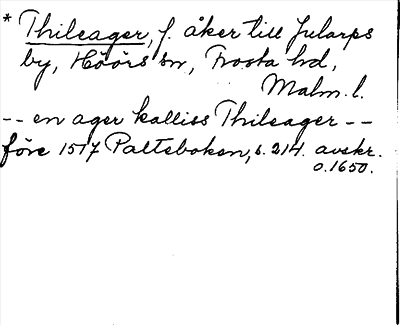 * Thileager, f. åker till Jularps
by, Höörs sn, Frosta hd,
Malm. l.
-- en ager kalliss Thileager --
före 1517 Palteboken, s. 214. avskr.
o. 1650.